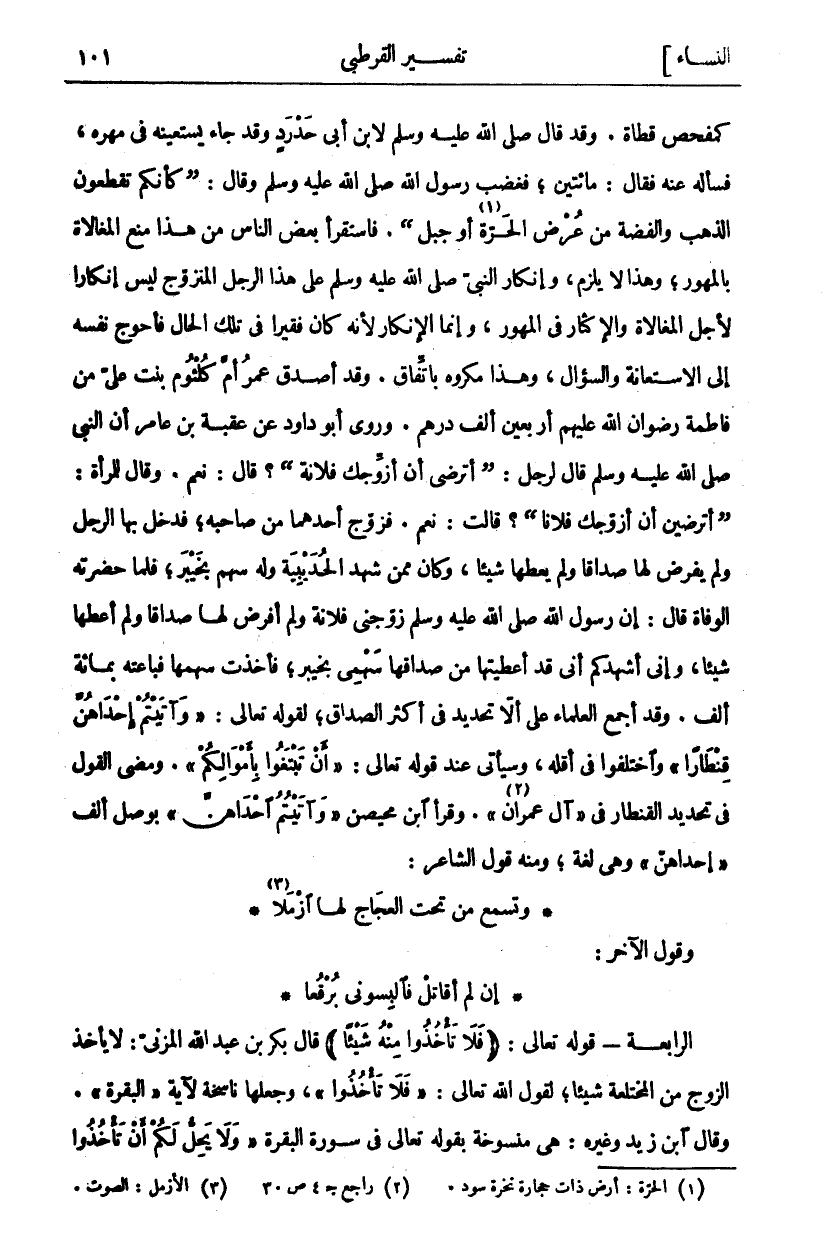 النساء ] تفسير القرطبي ١٠١
كمفحص قطاة . وقد قال صلى الله عليه وسلم لابن أبى حَدْرَدٍ وقد جاء يستعينه فى مهره ،
فسأله عنه فقال : مائتين ؛ فغضب رسول الله صلى الله عليه وسلم وقال : ” كأنكم تقطعون
الذهب والفضة من عُرْض الحَرّة (١) أو جبل “ . فاستقرأ بعض الناس من هذا منع المغالاة
بالمهور ؛ وهذا لا يلزم، وإنكار النبىّ صلى الله عليه وسلم على هذا الرجل المتزوّج ليس إنكارا
لأجل المغالاة والإكثار فى المهور ، وإنما الإنكار لأنه كان فقيرا فى تلك الحال فأحوج نفسه
إلى الاستعانة والسؤال ، وهذا مكروه باتّفاق . وقد أصدق عمرُ أمَّ كُلْثُوم بنت علىّ من
فاطمة رضوان الله عليهم أربعين ألف درهم . وروى أبو داود عن عقبة بن عامر أن النبى
صلى الله عليه وسلم قال لرجل : ” أترضى أن أزوّجك فلانة “ ؟ قال : نعم . وقال للمرأة :
” أترضين أن أزوّجك فلانا “ ؟ قالت : نعم . فزوّج أحدهما من صاحبه ؛ فدخل بها الرجل
ولم يفرض لها صداقا ولم يعطها شيئا ، وكان ممن شهد الحُدَيْبِيَة وله سهم بخَيْبَر ؛ فلما حضرته
الوفاة قال : إن رسول الله صلى الله عليه وسلم زوّجنى فلانة ولم أفرض لها صداقا ولم أعطها
شيئا ، وإنى أشهدكم أنى قد أعطيتها من صداقها سَهْمِى بخيبر ؛ فأخذت سهمها فباعته بمائة
ألف . وقد أجمع العلماء على ألّا تحديد فى أكثر الصداق ؛ لقوله تعالى : « وَآتَيْتُمْ إِحْدَاهُنَّ
قِنْطَارًا » وٱختلفوا فى أقله ، وسيأتى عند قوله تعالى : « أَنْ تَبْتَغُوا بِأَمْوَالِكُمْ » . ومضى القول
فى تحديد القنطار فى « آل عمران (٢) » . وقرأ ٱبن محيصن « وَآتَيْتُمُ ٱحْدَاهنّ » بوصل ألف
« إحداهنّ » وهى لغة ؛ ومنه قول الشاعر :
* وتسمع من تحت العجاج لها ٱزْمَلَا (٣) *
وقول الآخر :
* إن لم أقاتلْ فٱلبسونى بُرْقُعا *
الرابعة – قوله تعالى : ﴿ فَلَا تَأْخُذُوا مِنْهُ شَيْئًا ﴾ قال بكر بن عبد الله المزنىّ : لا يأخذ
الزوج من المختلعة شيئا ؛ لقول الله تعالى : « فَلَا تَأْخُذُوا » ، وجعلها ناسخة لآية « البقرة » .
وقال ٱبن زيد وغيره : هى منسوخة بقوله تعالى فى سورة البقرة « وَلَا يَحِلُّ لَكُمْ أَنْ تَأْخُذُوا
(١) الحرّة : أرض ذات حجارة نخرة سود . (٢) راجع جـ ٤ ص ٣٠ (٣) الأزمل : الصوت .